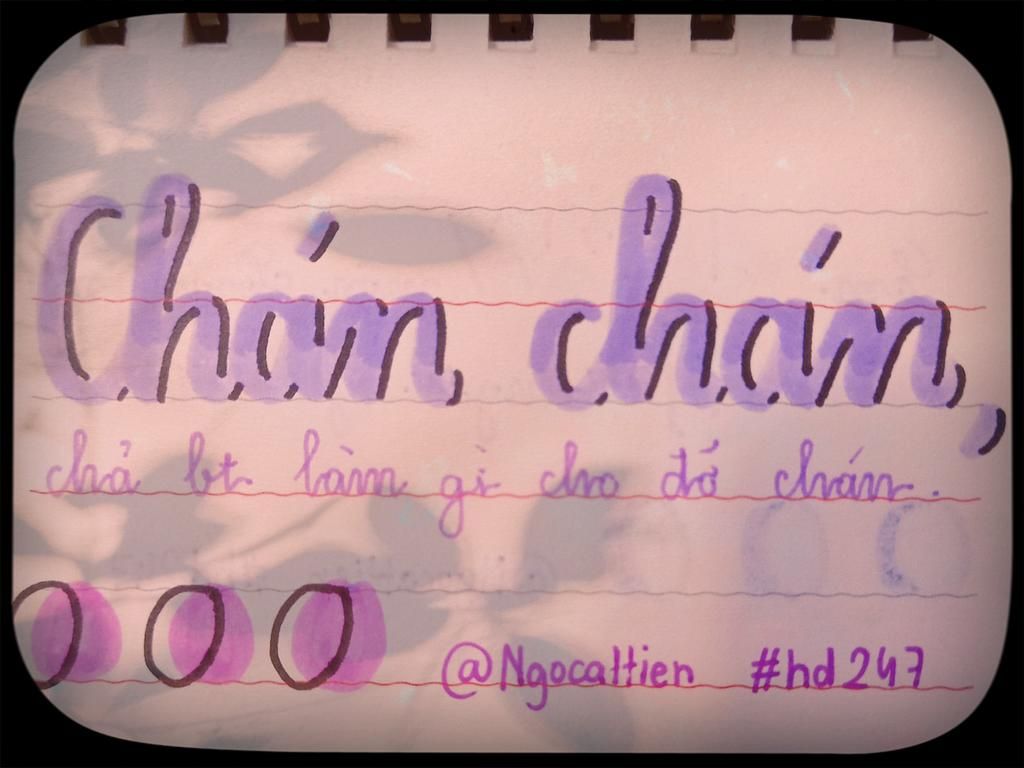 Chán, chán,
chả bt làm gì cho đỡ chán.
@Ngocattien #hd247